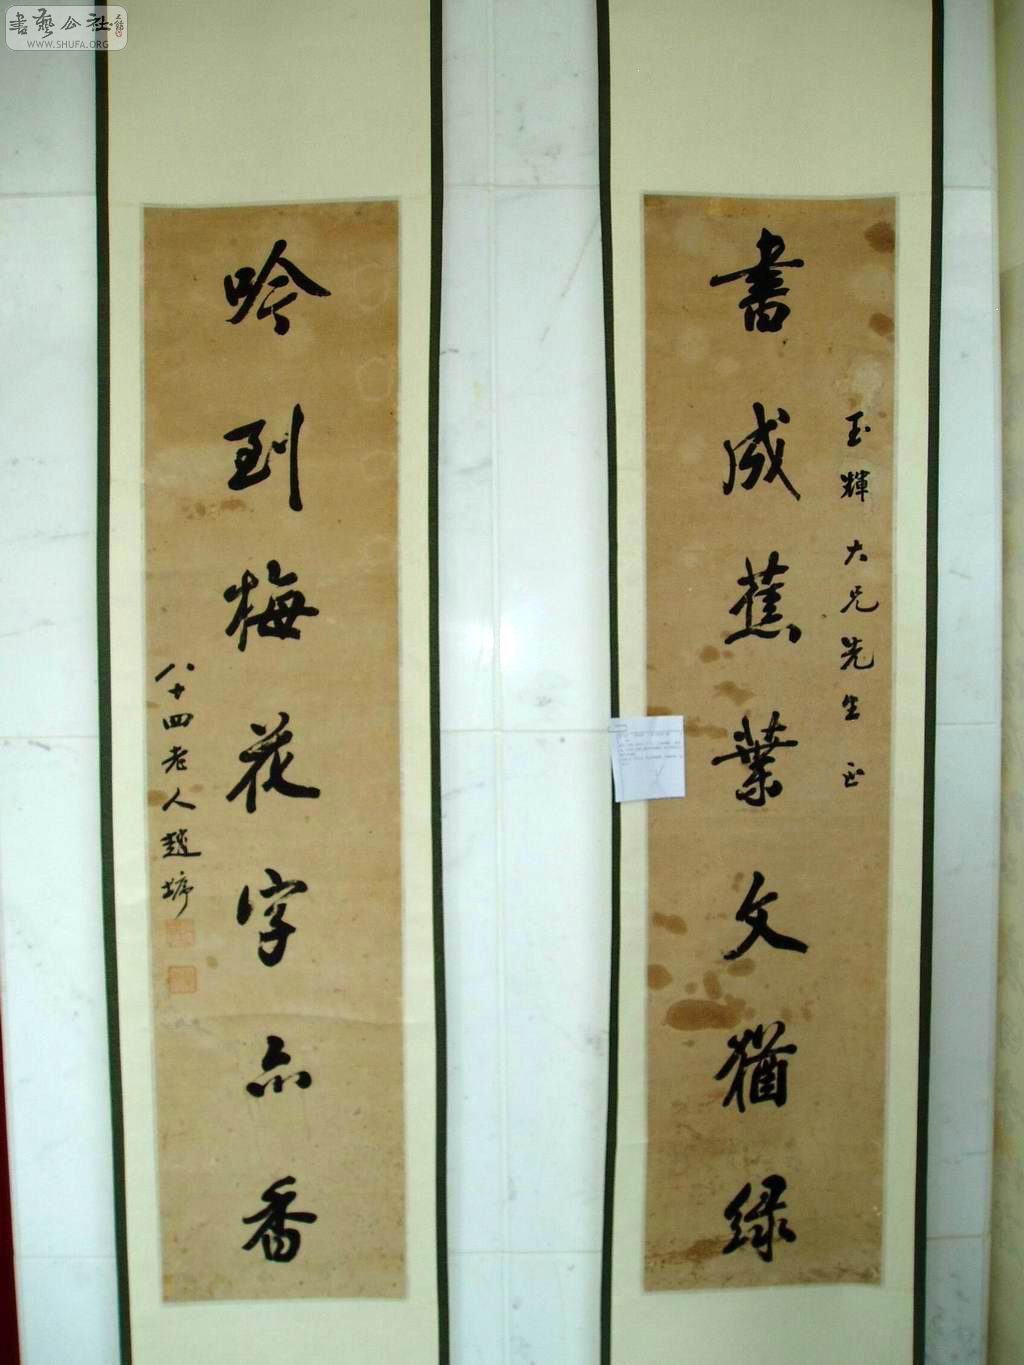 書藝公社
WWW.SHUFA.ORG
玉輝大兄先生正
書成蕉葉文猶綠
吟到梅花字亦香
八十四老人趙